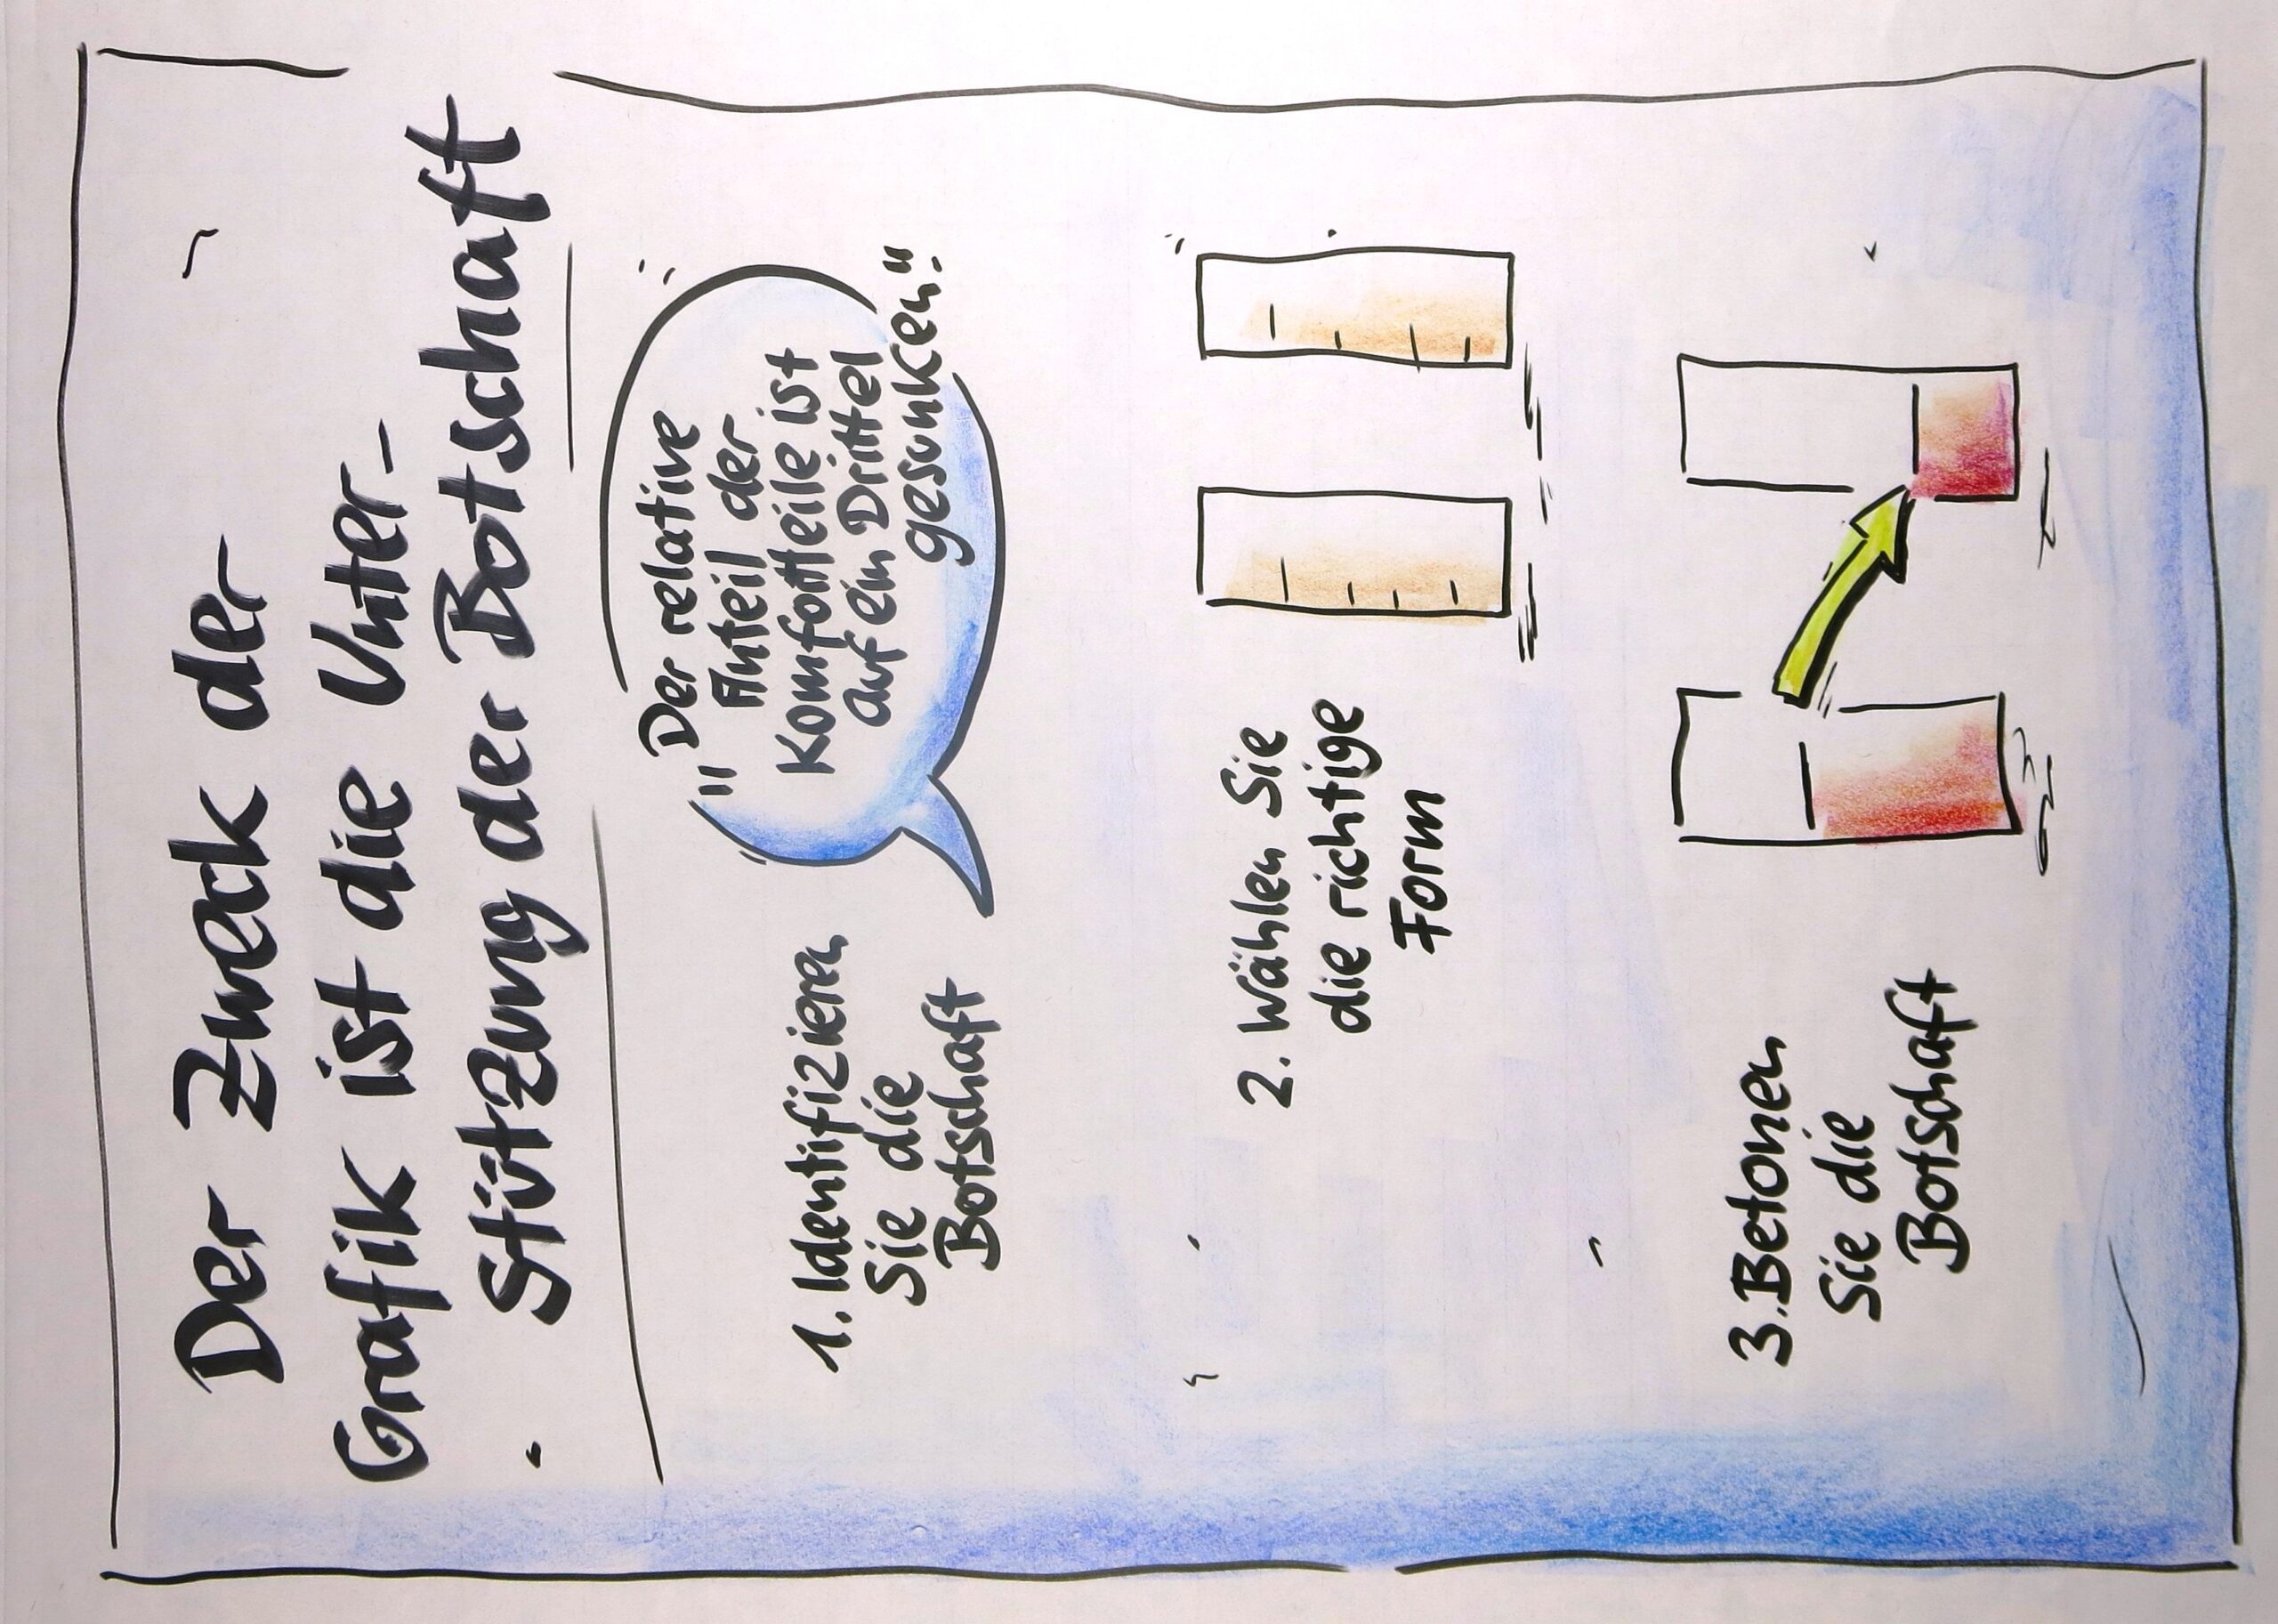 Der Zweck der
Grafik ist die Unter-
stützung der Botschaft
1. Identifizieren
Sie die
Botschaft
"Der relative
Anteil der
Komfortteile ist
auf ein Drittel
gesunken."
2. Wählen Sie
die richtige
Form
3. Betonen
Sie die
Botschaft